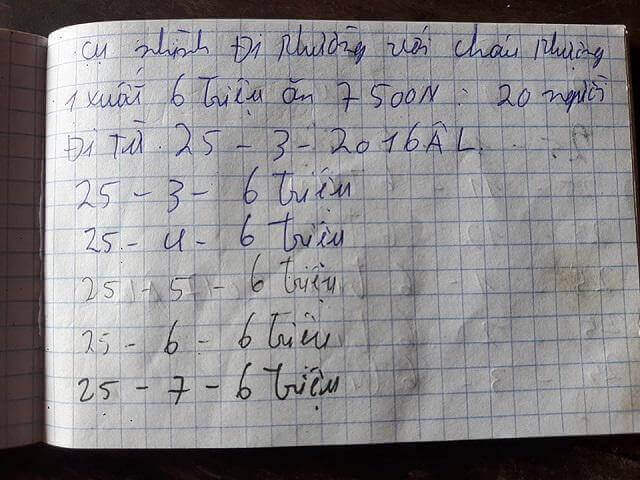 cụ nhình Đi phường với cháu Phượng
1 xuất 6 triệu ăn 7500N : 20 người
Đi Từ 25 - 3 - 2016 ÂL.
25 - 3 - 6 triệu
25 - 4 - 6 triệu
25 - 5 - 6 triệu
25 - 6 - 6 triệu
25 - 7 - 6 triệu